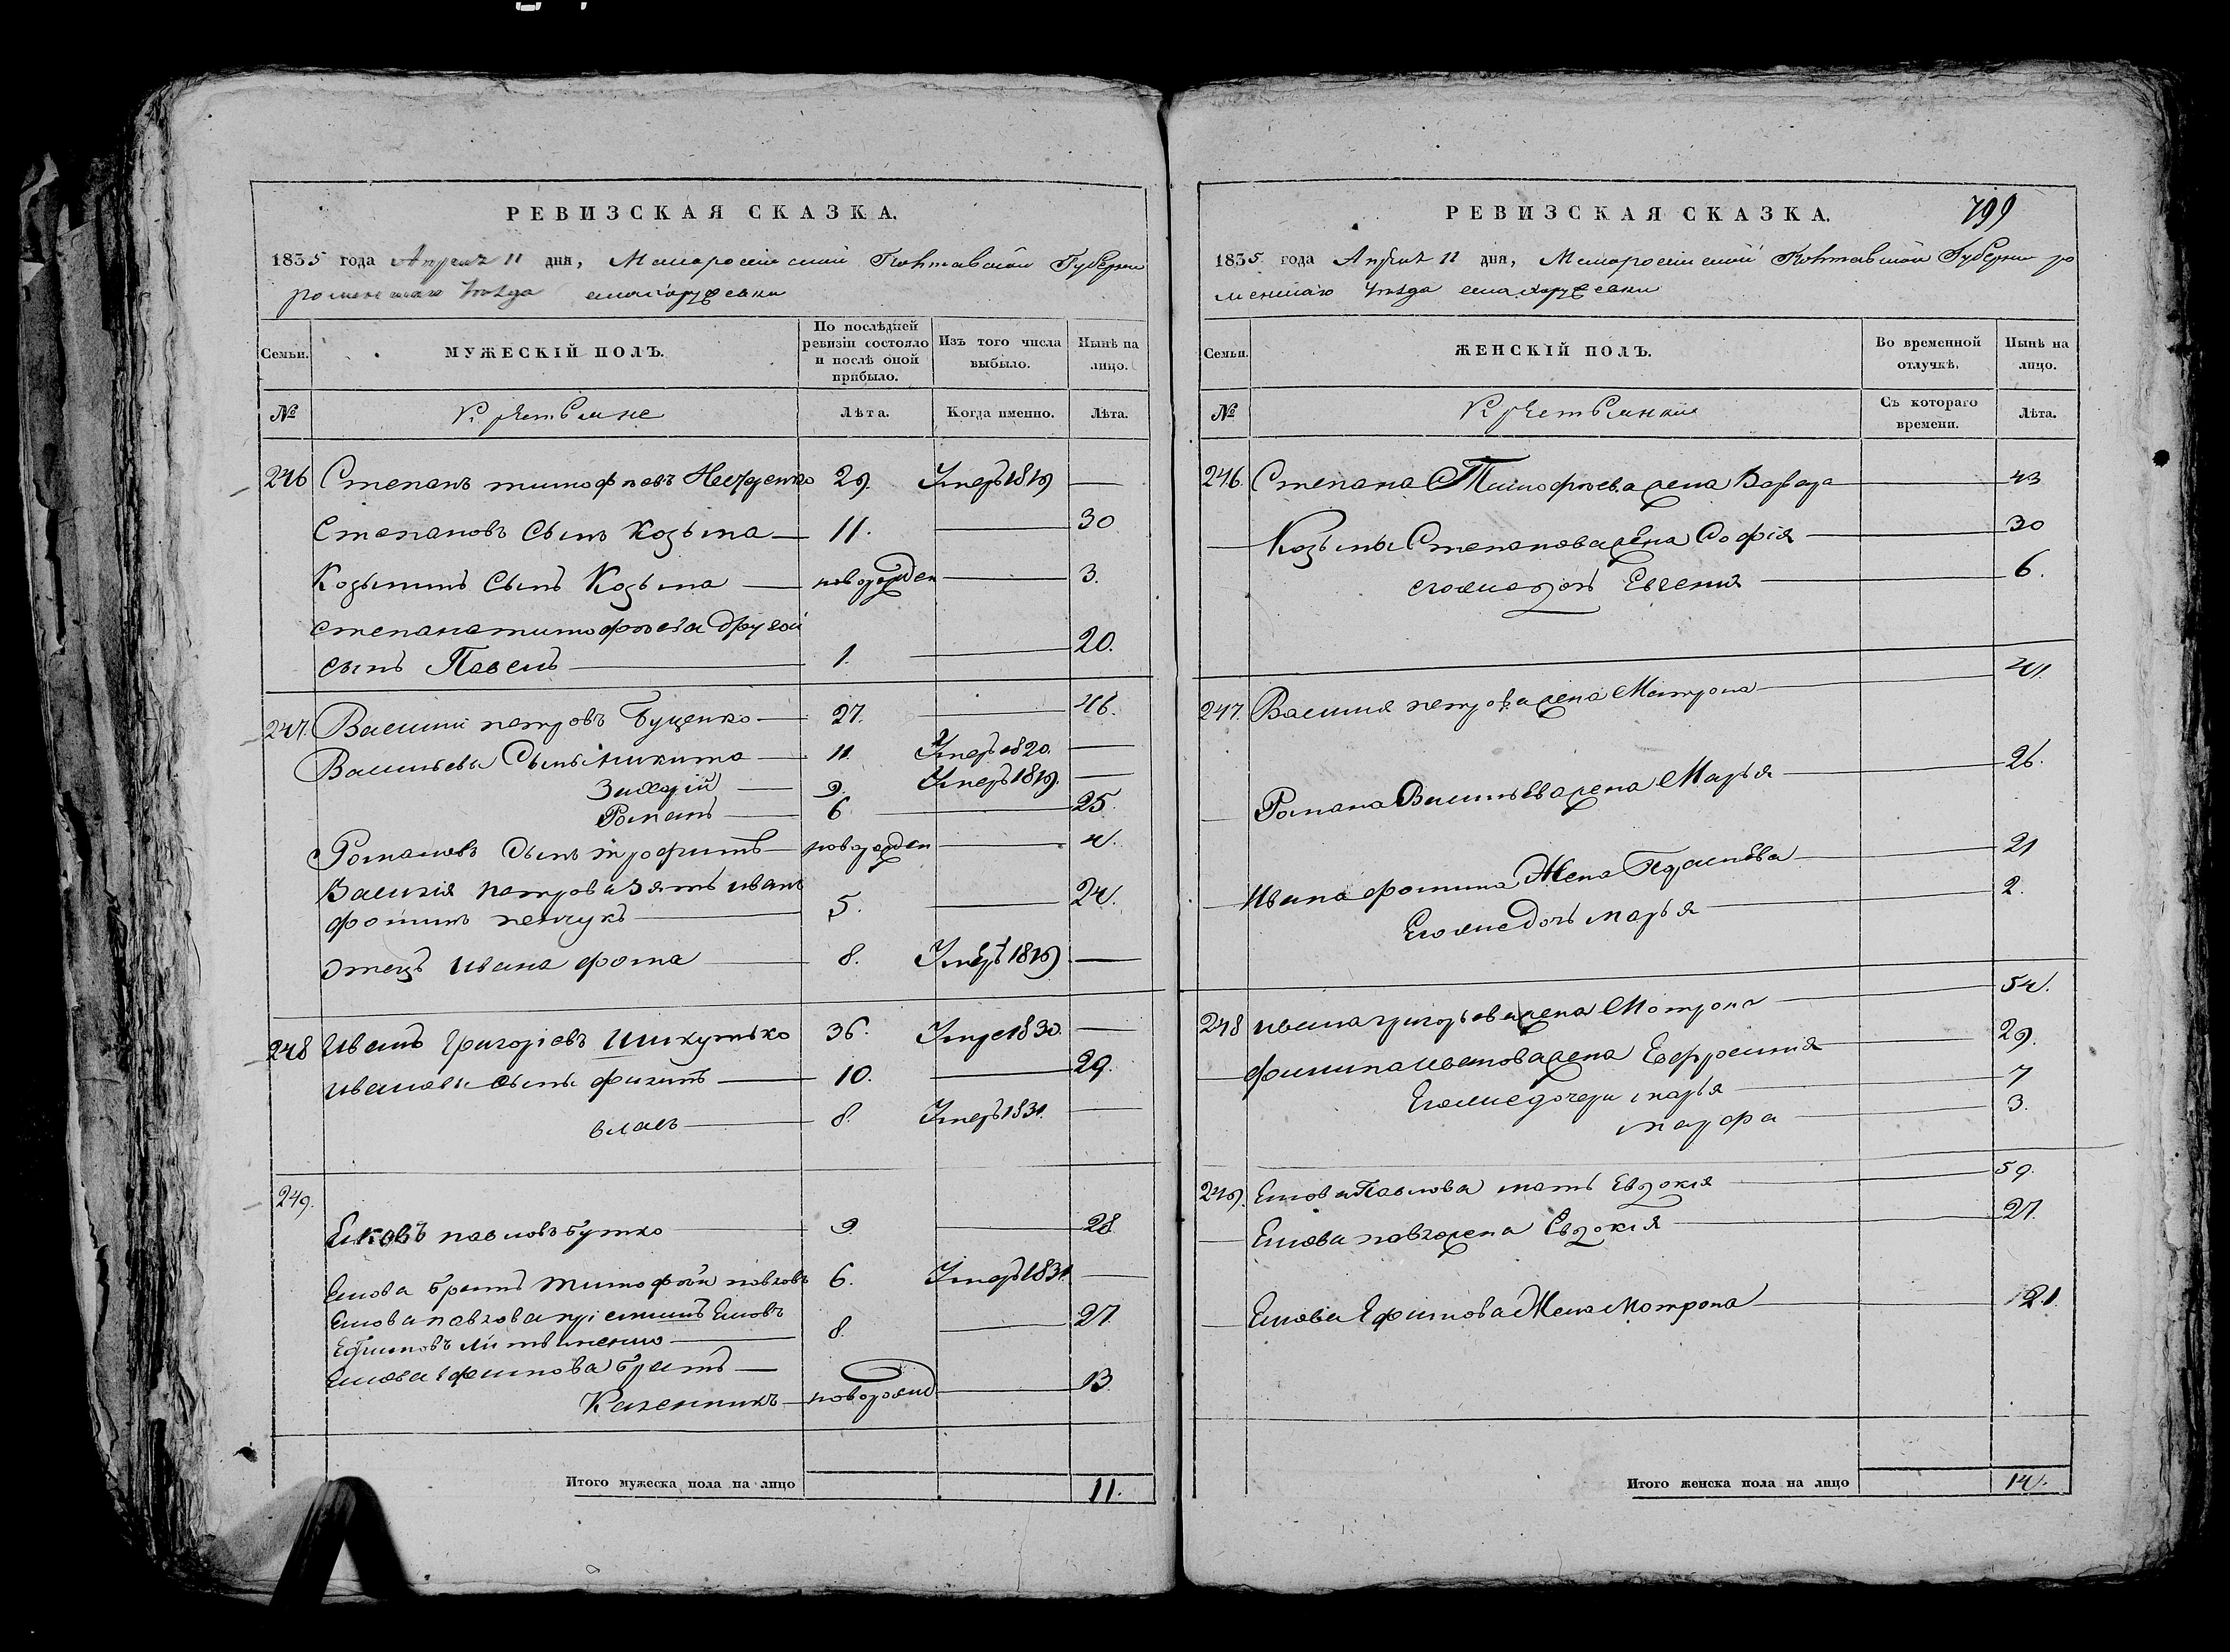 РЕВИЗСКАЯ СКАЗКА.
1835 года Апреля 11 дня, Малоросийской Полтавской Губернии
роменскаго уезда
Семьи.
МУЖЕСКІЙ ПОЛЪ.
По послѣдней ревизіи состояло и послѣ оной прибыло.
Изъ того числа выбыло.
Нынѣ на лицо.
№
Крестьяне
Лѣта.
Когда именно.
Лѣта.
246 Степанъ тимофѣевъ 29. Умеръ 1819 —
Степановъ Сынъ Козьма — 11. — 30
Козьминъ Сынъ Козьма — новорожден — 3.
степана тимофѣева другой
сынъ Павелъ — 1. — 20.
247. Василий петровъ Буценко — 27. — 46.
Васильевы Сыны никита — 11 Умеръ 1820. —
Захарій — 9. Умеръ 1819. —
Романъ — 6 — 25.
Романовъ Сынъ трофимъ — новорожден — 4.
Василія петрова зять иванъ
фоминъ — 5. — 24.
отецъ ивана фома — 8. Умеръ 1819 —
248 Иванъ Григоріевъ Шикутько 36. Умре 1830. —
ивановы сыны филипъ — 10. — 29.
власъ — 8. Умеръ 1831. —
249.
Яковъ павловъ Бутко — 9 — 28.
Якова братъ тимофѣй павловъ 6. Умеръ 1831. —
Якова павлова приемышъ Яковъ
Ефимовъ — 8. — 27.
Якова ефимова братъ —
новорожд — 13.
Итого мужеска пола на лицо 11.
РЕВИЗСКАЯ СКАЗКА. 799
1835 года Апреля 11 дня, Малоросийской Полтавской Губернии ро
менскаго уезда
Семьи.
ЖЕНСКІЙ ПОЛЪ.
Во временной отлучкѣ.
Нынѣ на лицо.
№
Крестьянки
Съ котораго времени.
Лѣта.
246. Степана Тимофѣева жена Варвара — 43
Козьмы Степанова жена Софія — 30
его же дочь Евгения — 6.
247. Василия петрова жена Матрона — 41.
Романа Васильева жена Марья — 26.
Ивана фомина Жена — 21
Его же дочь марья — 2.
248 ивана григорьева жена Мотрона — 54.
филипа иванова жена Ефросиния — 29.
Его же дочери марья — 7
марфа — 3.
249. Якова Павлова мать Евдокия — 59.
Якова павлова жена Евдокія — 27.
Якова Ефимова Жена Мотрона — 21.
Итого женска пола на лицо 14.